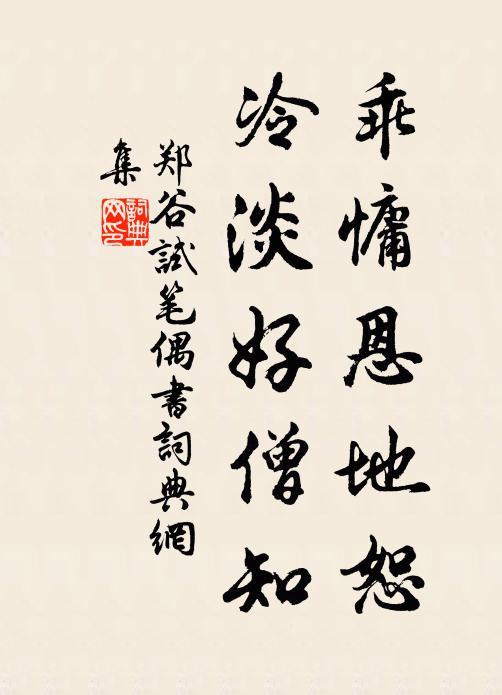 乖慵恩地恕
冷淡好僧知
郑谷試笔偶書詞典網
集
詞典
网印